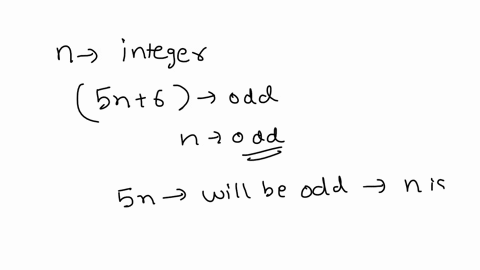 n → integer
(5n+6) → odd
n → odd
5n → will be odd → n is